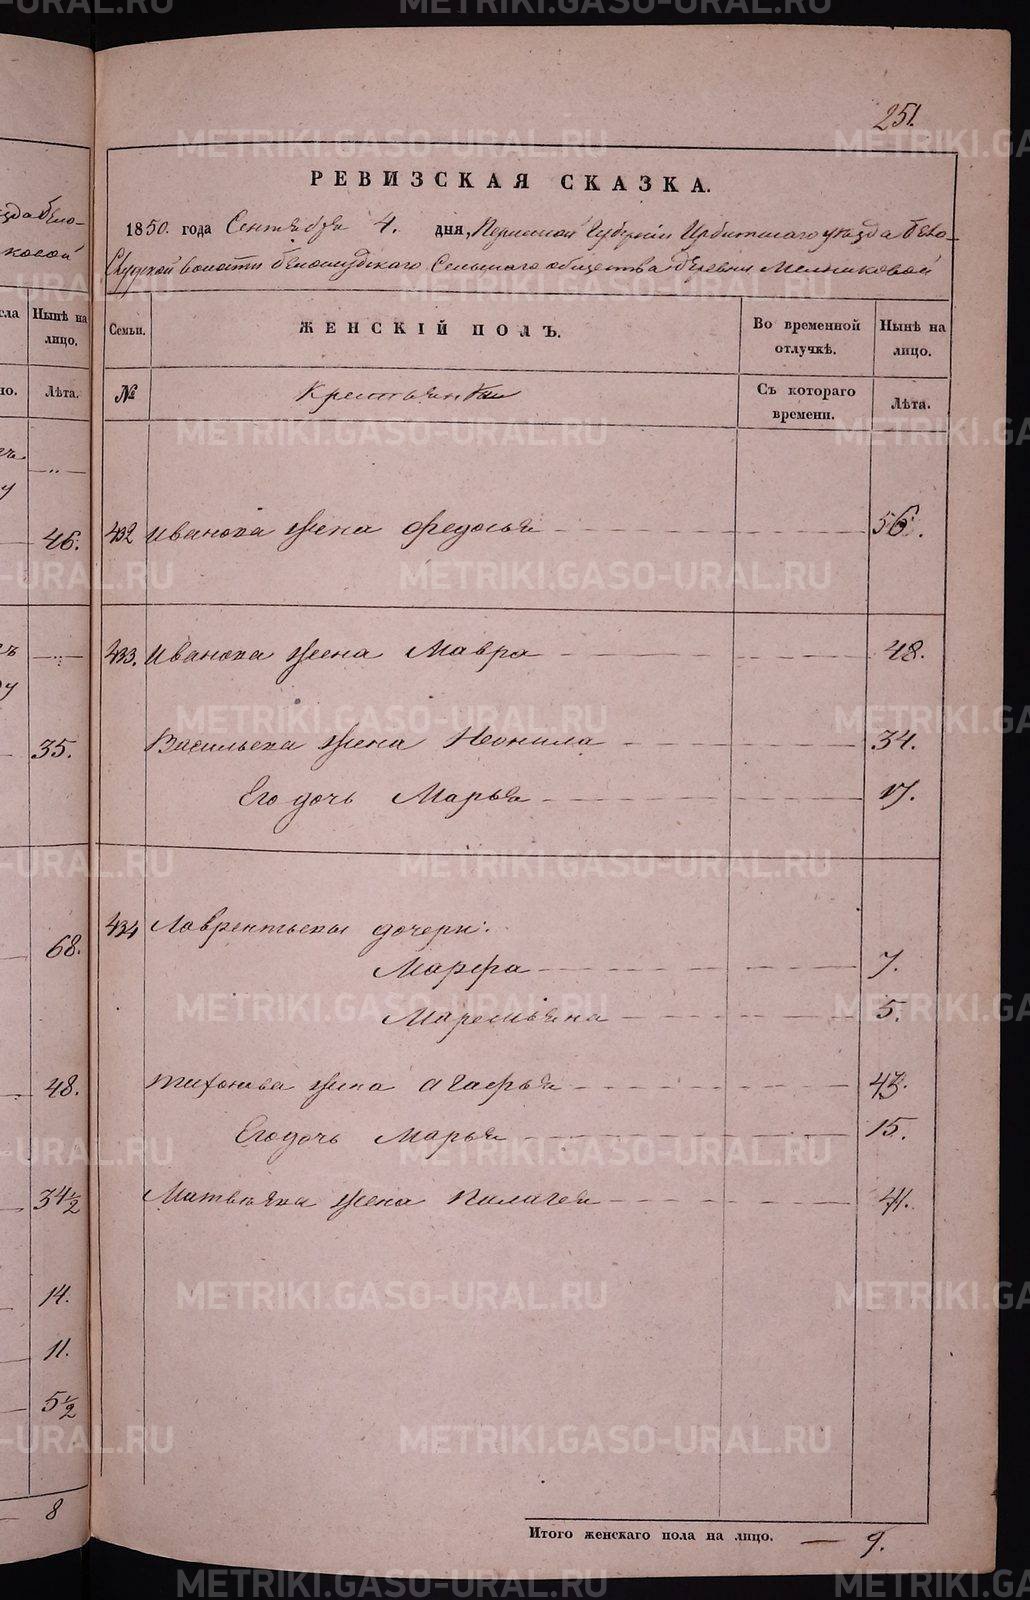 251.
РЕВИЗСКАЯ СКАЗКА.
1850. года Сентября 4. дня, Пермской Губернiи Ирбитскаго уезда Бело-
Слудской волости Белослудскаго Сельскаго общества Деревни Мельниковой
Семьи. ЖЕНСКIЙ ПОЛЪ. Во временной отлучкѣ. Нынѣ на лицо.
№ Крестьянки Съ котораго времени. Лѣта.
432 Иванова жена Федосья 56.
433. Иванова жена Мавра 48.
Васильева жена Неонила 34.
Его дочь Марья 17.
434 Лаврентьевы дочери:
Марфа 7.
Маремьяна 5.
Тихонова жена Агафья 43.
Его дочь Марья 15.
Матвѣева жена Пилагея 41.
Итого женскаго пола на лицо. — 9.
уезда Бело-
ковой
Нынѣ на лицо.
Лѣта.
46.
35.
68.
48.
34 1/2
14.
11.
5 1/2
8
METRIKI.GASO-URAL.RU